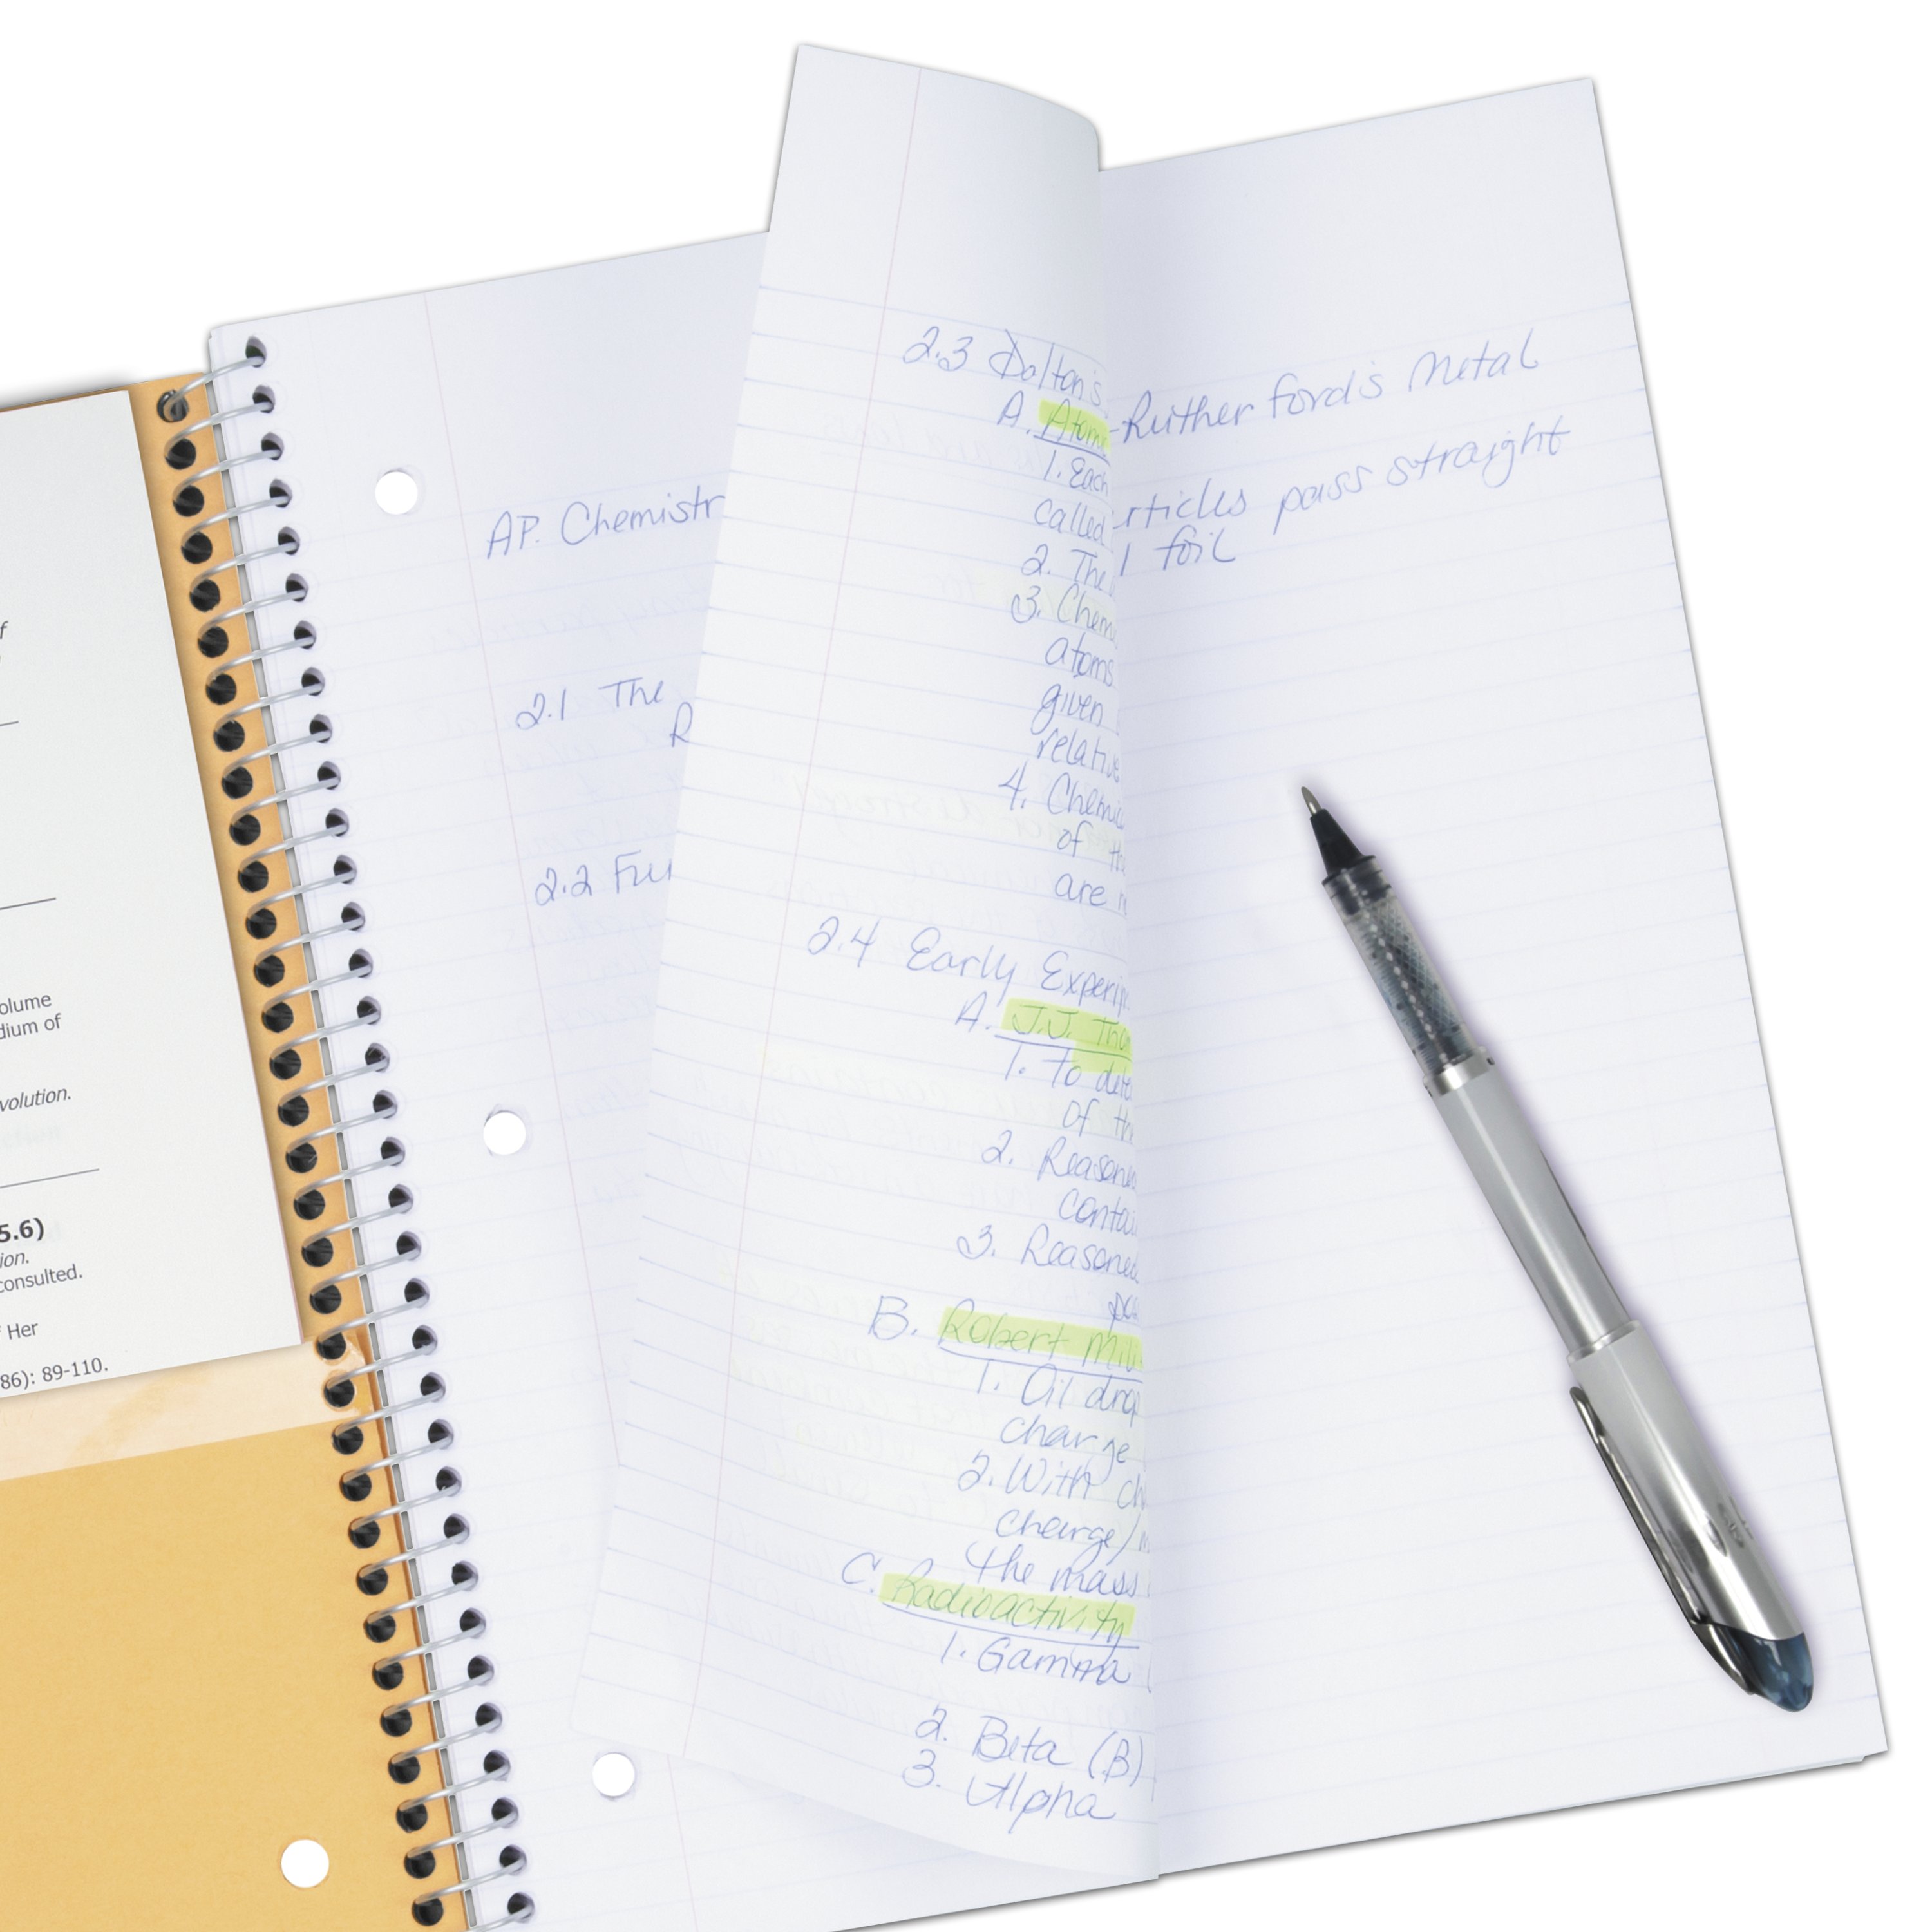 f
olume
dium of
volution.
5.6)
ion.
consulted.
f Her
86): 89-110.
AP. Chemistr
2.1 The
R
2.2 Fu
2.3 Dalton's
A. Atom
1. Each
called
2. The
3. Chem
atoms
given
relativ
4. Chemic
of th
are n
2.4 Early Experi
A. J.J. Tho
1. To det
of the
2. Reasone
contai
3. Reasoned
pa
B. Robert Mil
1. Oil drop
charge
2. With ch
charge/m
the mass
C. Radioactivity
1. Gamma
2. Beta (B)
3. Alpha
-Rutherford's Metal
rticles pass straight
l foil